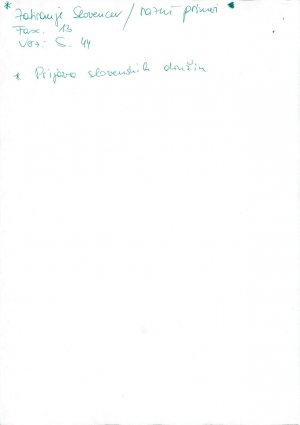 * Zatiranje Slovencev / razni primeri
Fasc. 13
VSZ: S. 44
* Prijava slovenskih družin